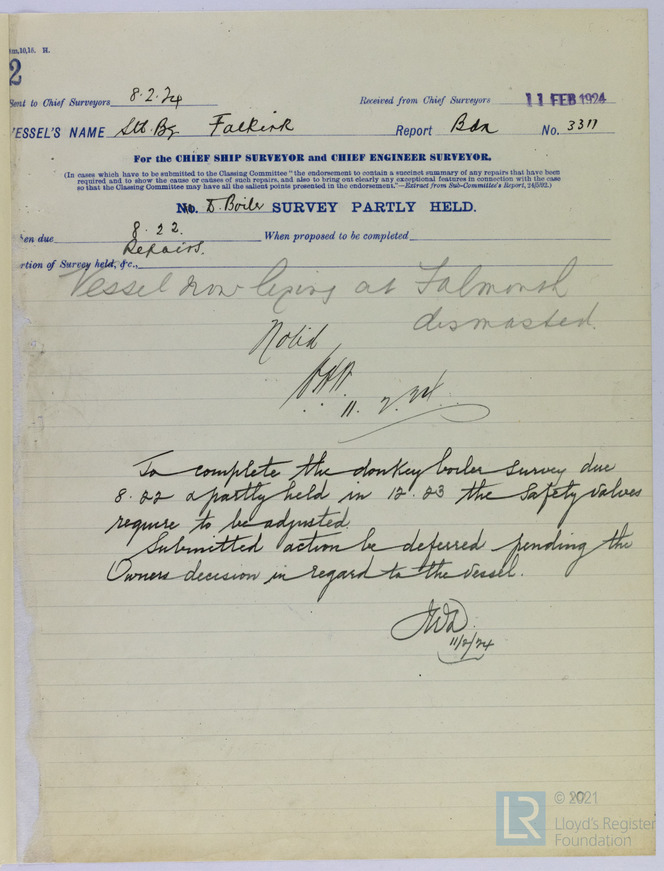 2
Sent to Chief Surveyors 8.2.24 Received from Chief Surveyors 11 FEB 1924
VESSEL'S NAME Stl. Bq Falkirk Report Bdx No. 3311
For the CHIEF SHIP SURVEYOR and CHIEF ENGINEER SURVEYOR.
(In cases which have to be submitted to the Classing Committee "the endorsement to contain a succinct summary of any repairs that have been
required and to show the cause or causes of such repairs, and also to bring out clearly any exceptional features in connection with the case
so that the Classing Committee may have all the salient points presented in the endorsement."—Extract from Sub-Committee's Report, 24/5/92.)
No. D. Boiler SURVEY PARTLY HELD.
en due 8.22. When proposed to be completed
Repairs.
rtion of Survey held, &c.,
Vessel now lying at Falmouth
dismasted.
Noted
11.2.24
To complete the donkey boiler survey due
8.22 & partly held in 12.23 the safety valves
require to be adjusted.
Submitted action be deferred pending the
Owners decision in regard to the vessel.
11/2/24
© 2021
LR
Lloyd's Register
Foundation